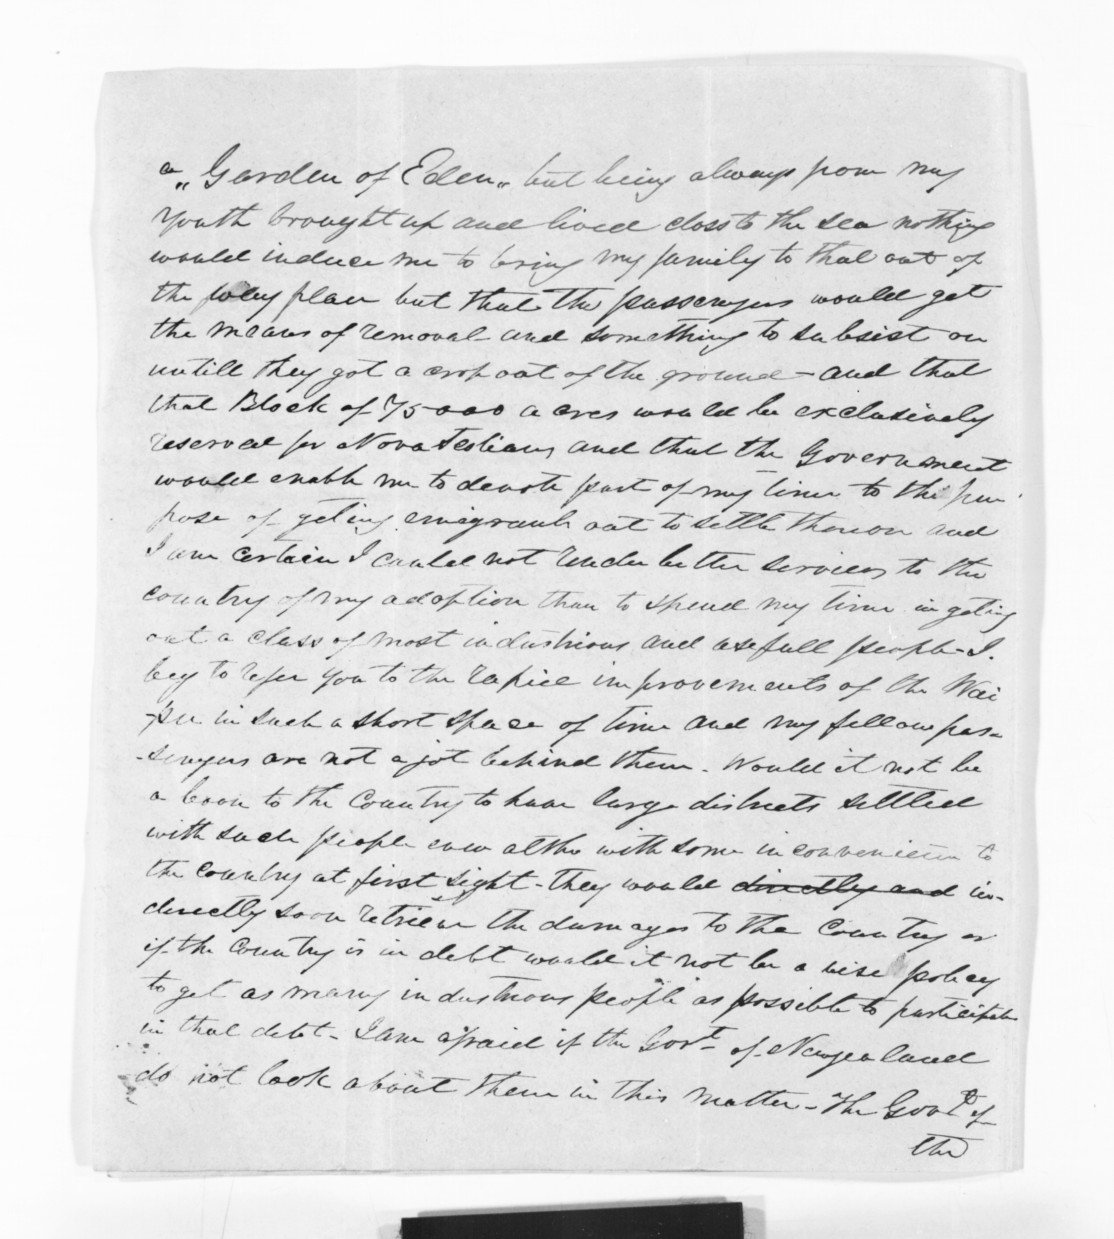 a „Garden of Eden„ but being always from my
youth brought up and lived close to the sea nothing
would induce me to bring my family to that out of
the way place but that the passengers would get
the means of removal and something to subsist on
untill they got a crop out of the ground - and that
that Block of 75000 acres would be exclusively
reserved for Nova and that the Government
would enable me to devote part of my time to the pur
pose of geting emigrants out to settle thereon and
I am certain I could not render better services to the
country of my adoption than to spend my time in geting
out a class of most industrious and usefull people - I
beg to refer you to the rapid improvements of the Wai
pu in such a short space of time and my fellow pas-
-sengers are not a jot behind them - Would it not be
a boon to the Country to have large districts settled
with such people even altho with some inconvenience to
the country at first sight - they would directly and in-
directly soon retrieve the damages to the Country or
if the Country is in debt would it not be a wise policy
to get as many industrious people as possible to participate
in that debt - I am afraid if the Govt of Newzealand
do not look about them in this matter - The Govt of
the